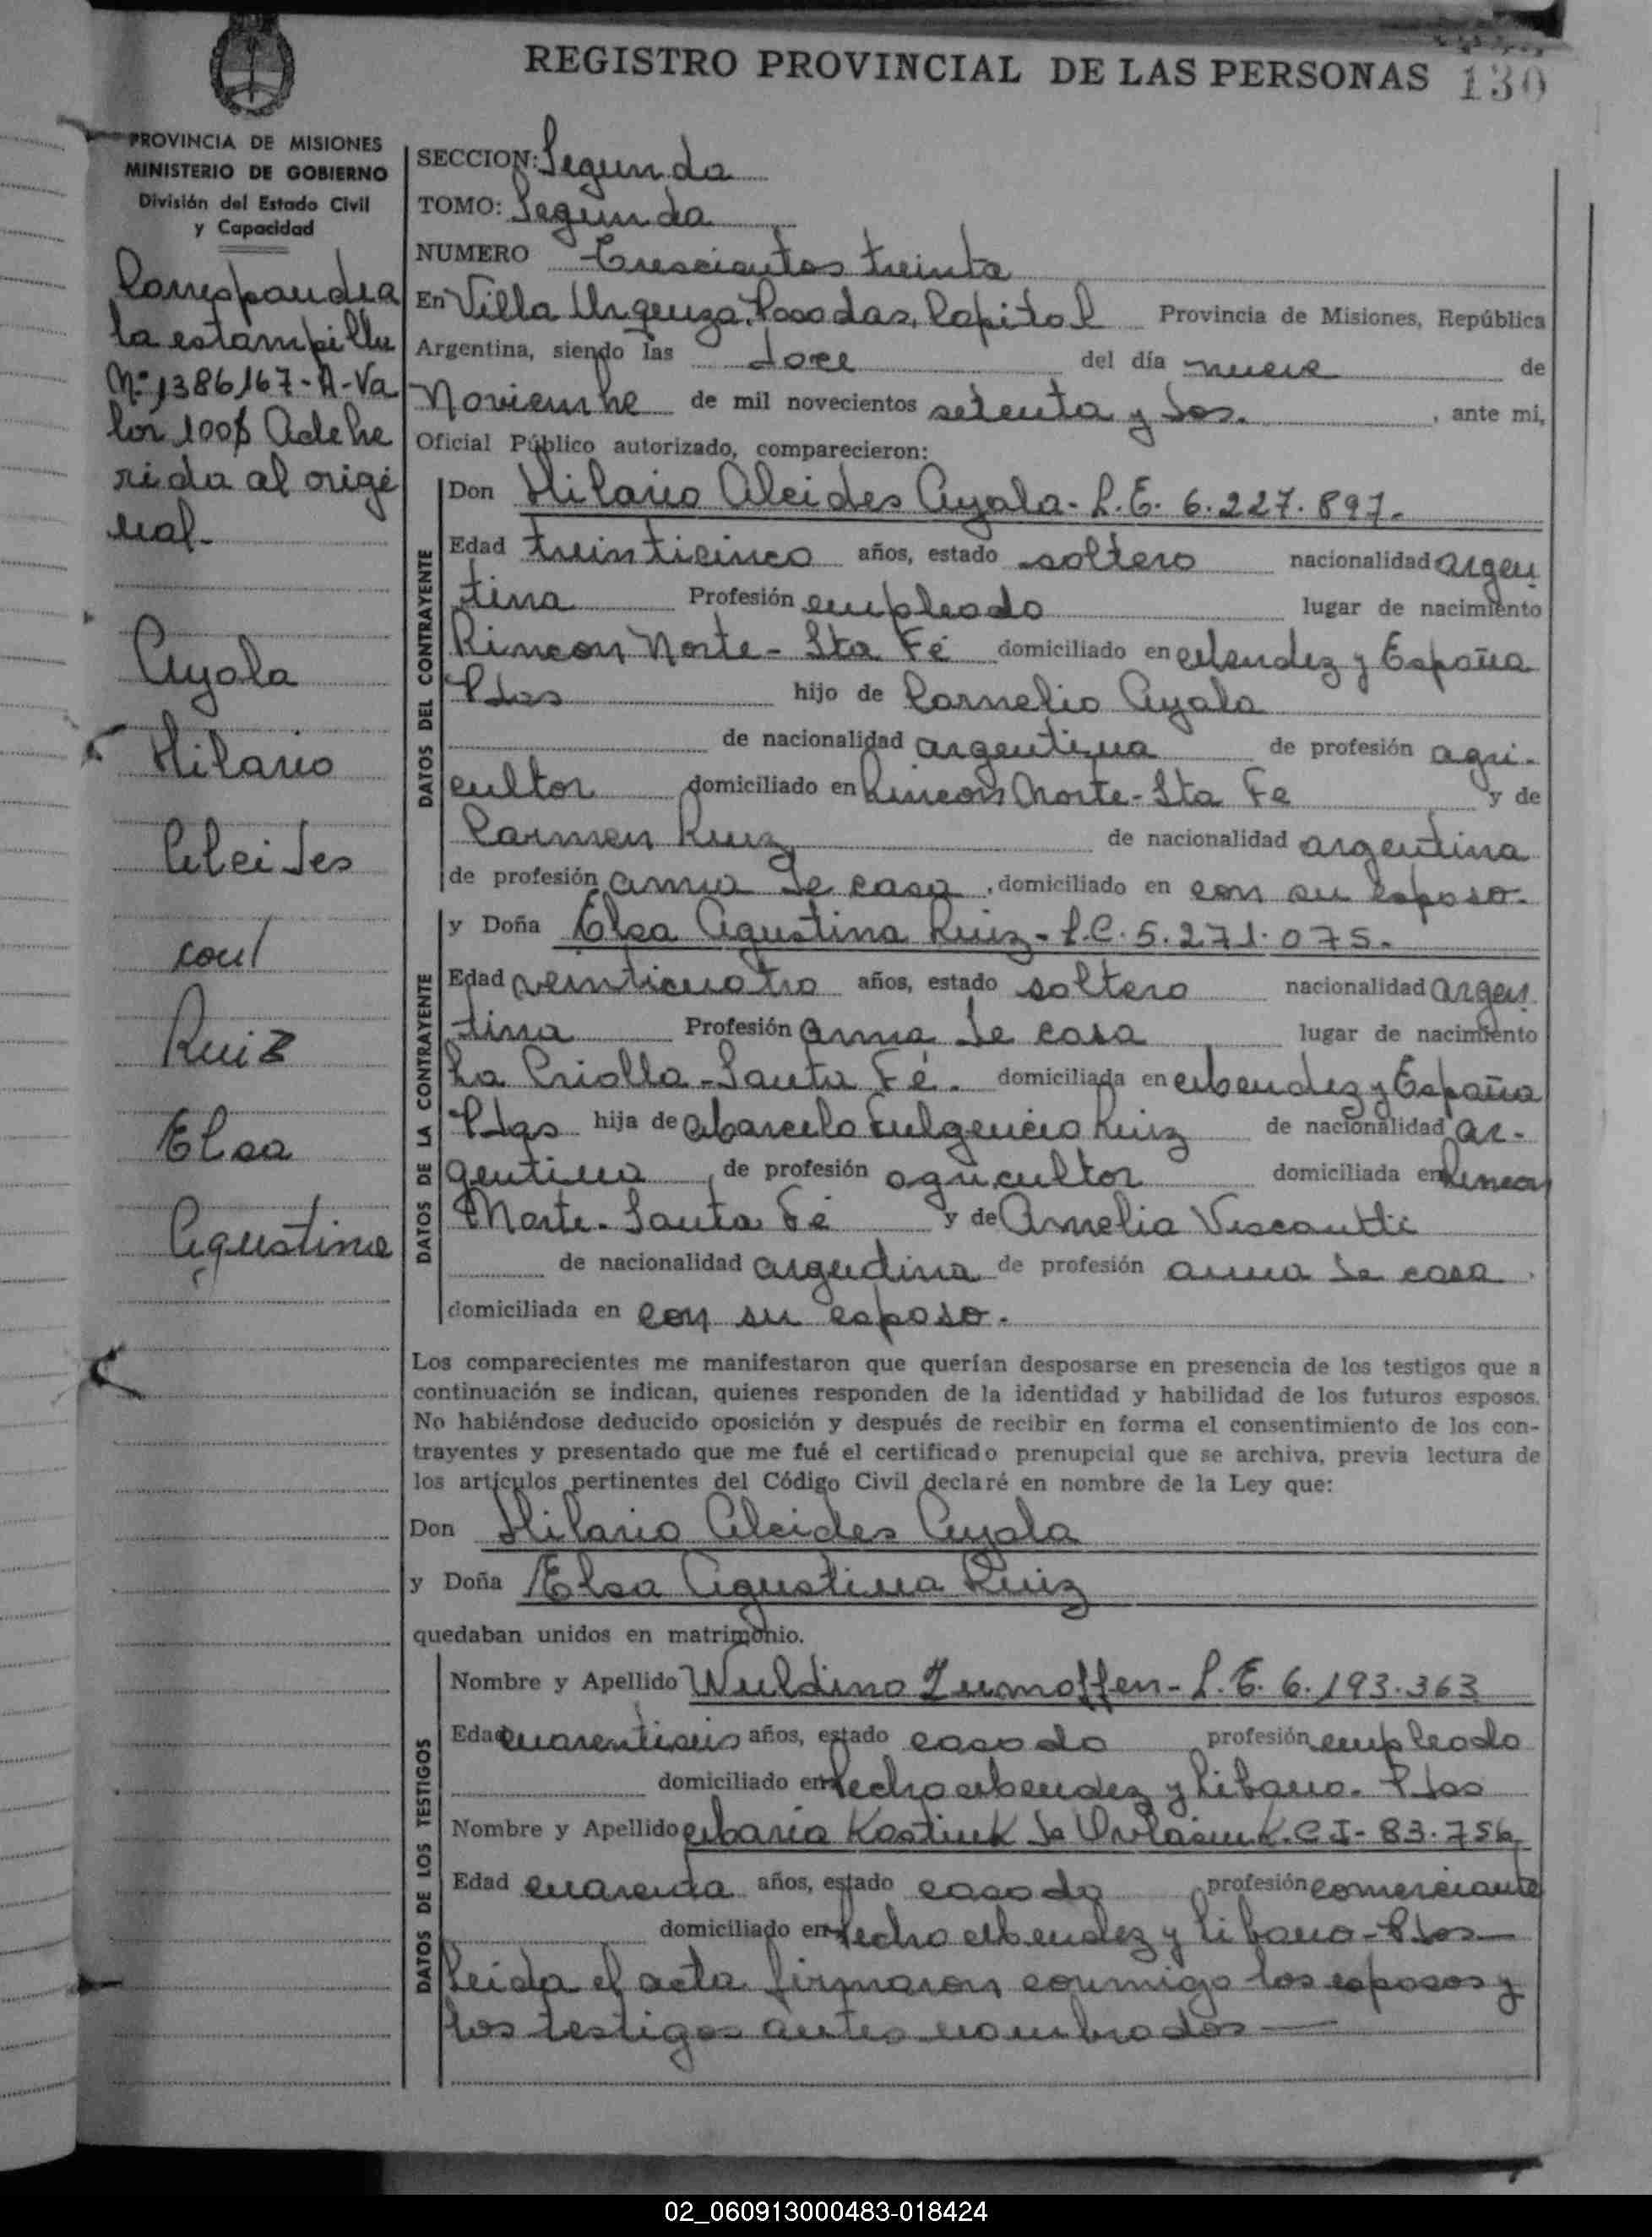 REGISTRO PROVINCIAL DE LAS PERSONAS 130
PROVINCIA DE MISIONES
MINISTERIO DE GOBIERNO
División del Estado Civil
y Capacidad
Correspondia
la estampilla
Nº 1386167-A-Va
lor 100$ Adehe
rida al origi
nal-
Ayala
Hilario
Alcides
con/
Ruiz
Elsa
Agustina
SECCION: Segunda
TOMO: Segunda
NUMERO Trescientos treinta
En Villa Urquiza, Posadas, Capital Provincia de Misiones, República
Argentina, siendo las doce del día nueve de
Noviembre de mil novecientos setenta y dos. , ante mi,
Oficial Público autorizado, comparecieron:
DATOS DEL CONTRAYENTE
Don Hilario Alcides Ayala- L.E. 6.227.897.
Edad treinticinco años, estado soltero nacionalidad argen
tina Profesión empleado lugar de nacimiento
Rincon Norte- Sta Fé domiciliado en Mendez y España
Pdas hijo de Cornelio Ayala
de nacionalidad argentina de profesión agri-
cultor domiciliado en Rincon Norte-Sta Fe y de
Carmen Ruiz de nacionalidad argentina
de profesión ama de casa , domiciliado en con su esposo.
DATOS DE LA CONTRAYENTE
y Doña Elsa Agustina Ruiz- L.C. 5.271.075.
Edad veinticuatro años, estado soltera nacionalidad argen
tina Profesión ama de casa lugar de nacimiento
La Criolla-Santa Fé. domiciliada en Mendez y España
Pdas hija de Marcelo Fulgencio Ruiz de nacionalidad ar-
gentina , de profesión agricultor domiciliada en Rincon
Norte- Santa Fé y de Amelia Viscontti
de nacionalidad argentina de profesión ama de casa
domiciliada en con su esposo.
Los comparecientes me manifestaron que querían desposarse en presencia de los testigos que a
continuación se indican, quienes responden de la identidad y habilidad de los futuros esposos.
No habiéndose deducido oposición y después de recibir en forma el consentimiento de los con-
trayentes y presentado que me fué el certificado prenupcial que se archiva, previa lectura de
los artículos pertinentes del Código Civil declaré en nombre de la Ley que:
Don Hilario Alcides Ayala
y Doña Elsa Agustina Ruiz
quedaban unidos en matrimonio.
DATOS DE LOS TESTIGOS
Nombre y Apellido Wuldino Zumoffen- L.E. 6.193.363
Edad cuarentiseis años, estado casado profesión empleado
domiciliado en Pedro Mendez y Libano. Pdas
Nombre y Apellido Maria Kostiuk de C.I- 83.756
Edad cuarenta años, estado casada profesión comerciante
domiciliado en Pedro Mendez y Libano-Pdas
Leida el acta firmaron conmigo los esposos y
los testigos antes nombrados
02_060913000483-018424